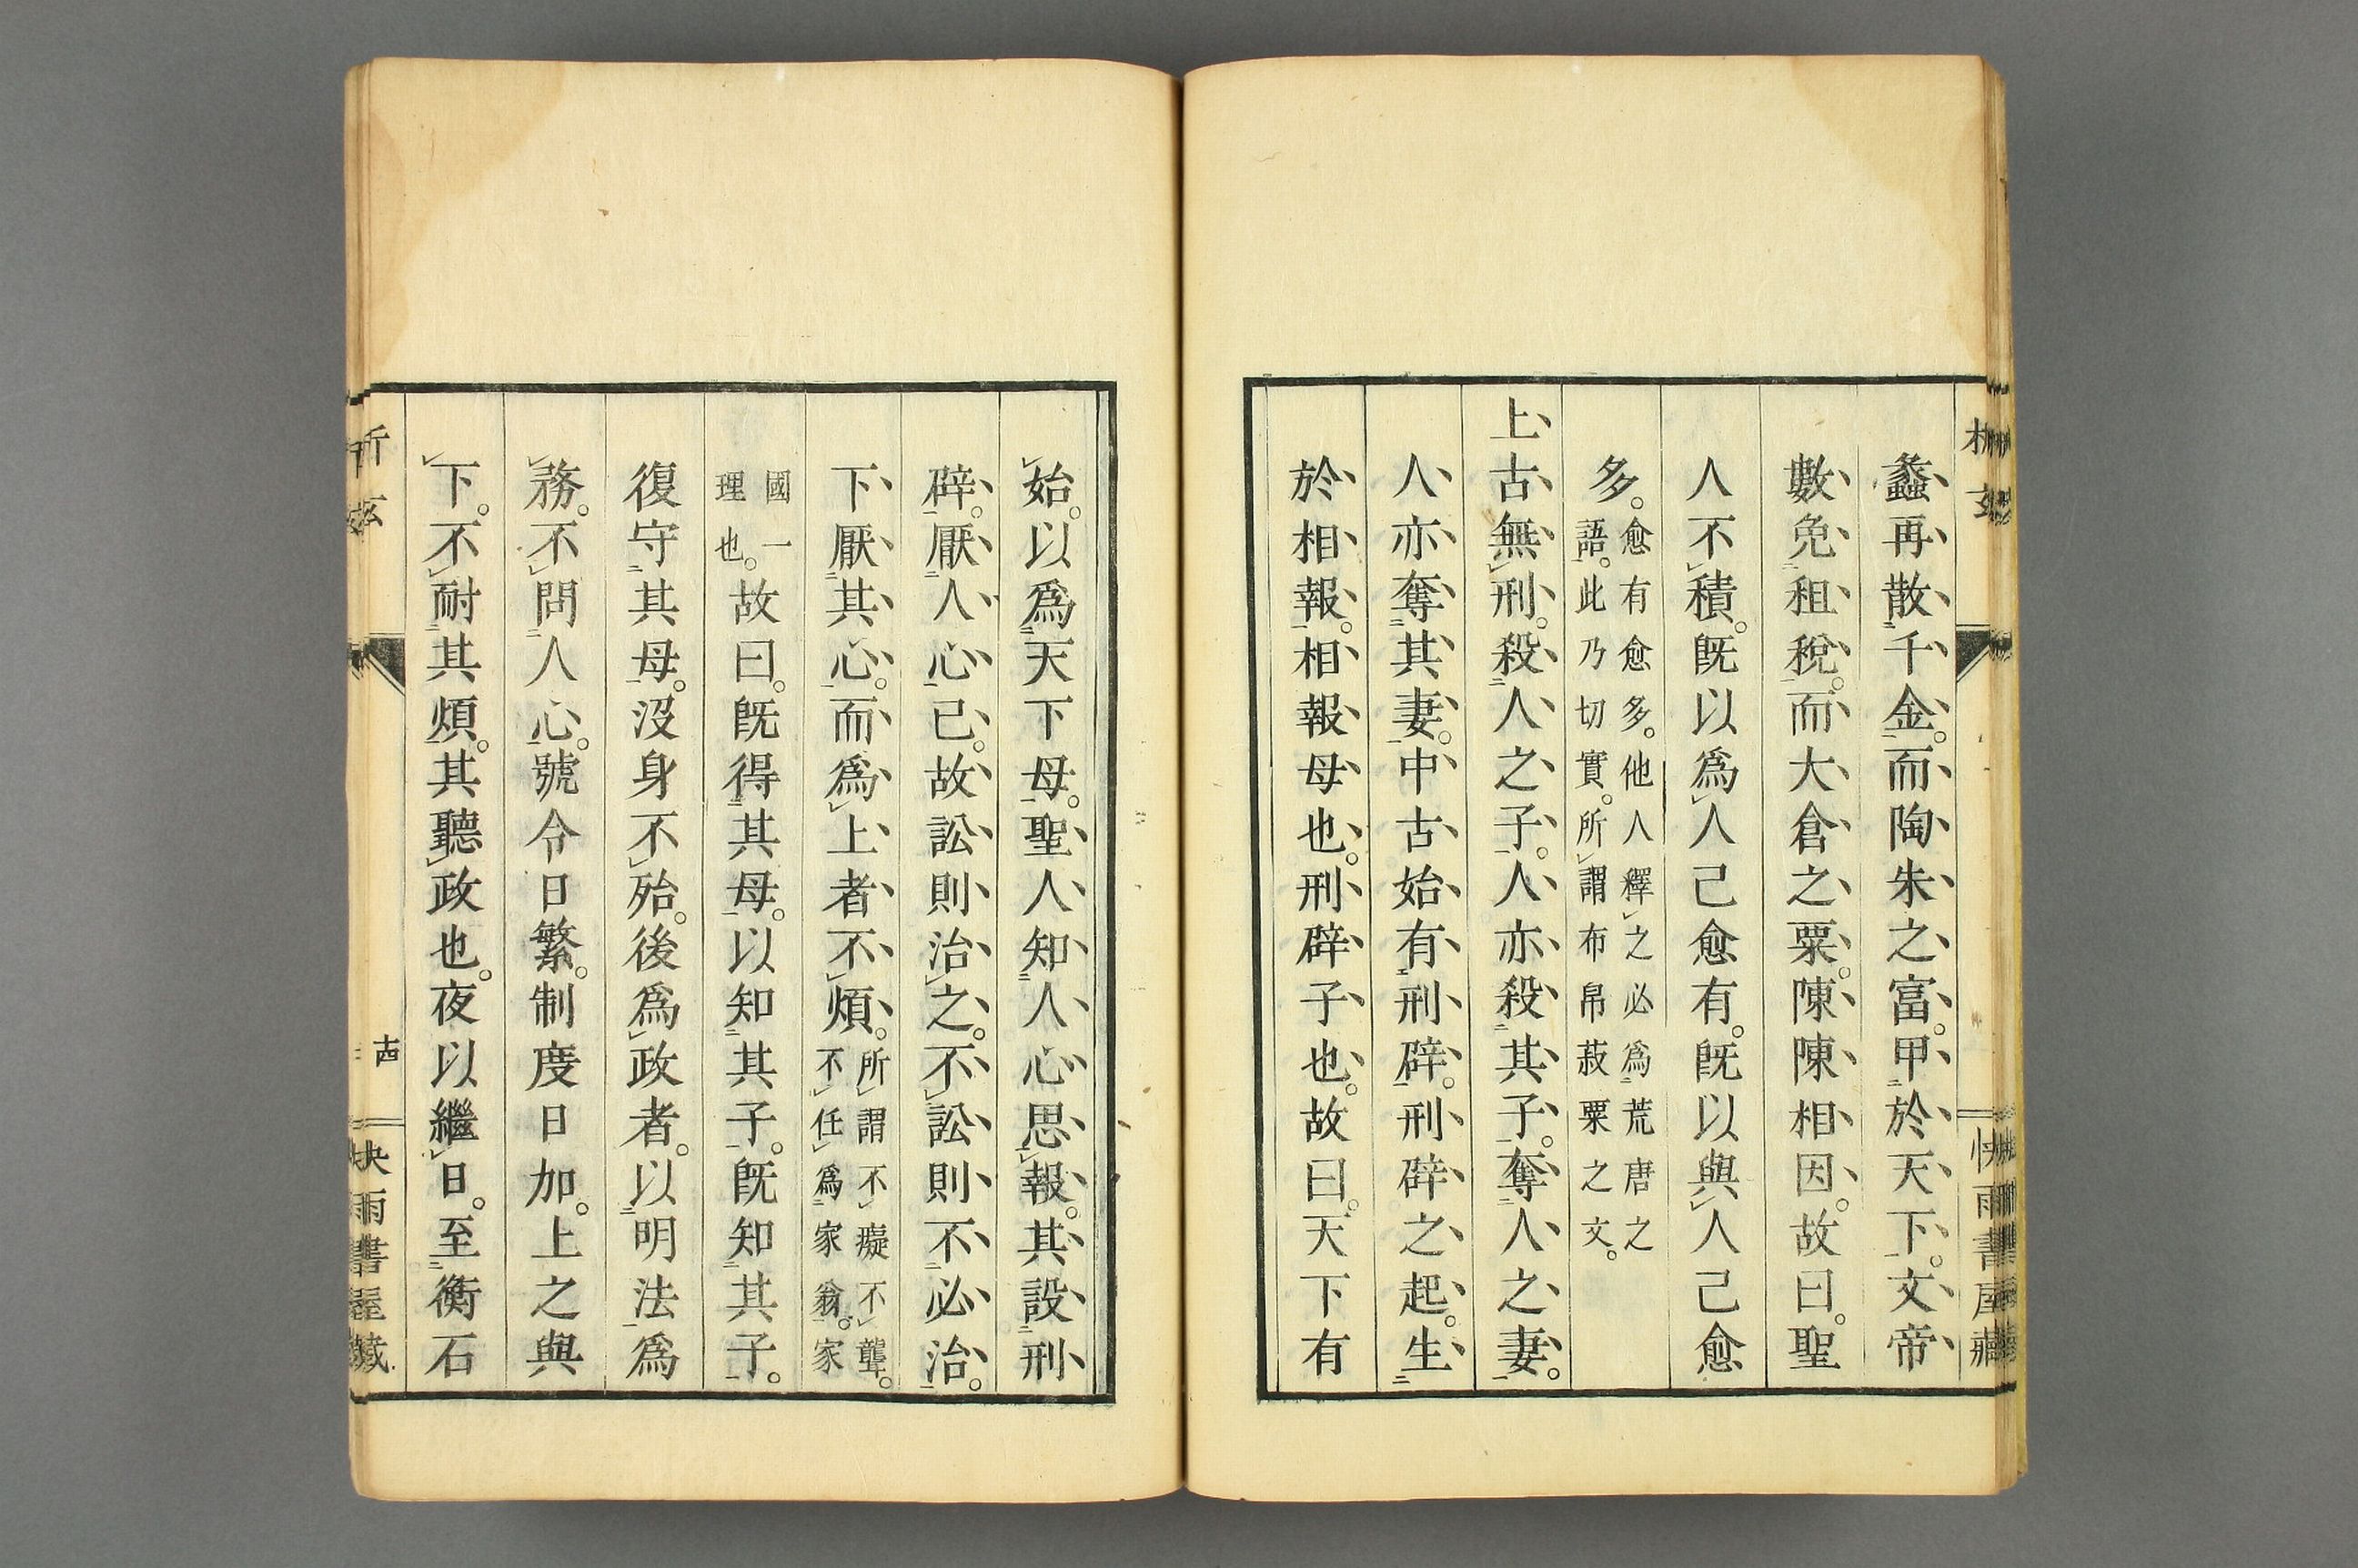 蠡再散千金。而陶朱之富。甲於天下。文帝
數免租稅。而大倉之粟。陳陳相因。故曰。聖
人不積。既以爲人己愈有。既以與人己愈
多。愈有愈多。他人釋之必爲荒唐之
語。此乃切實。所謂布帛菽粟之文。
上古無刑。殺人之子。人亦殺其子。奪人之妻。
人亦奪其妻。中古始有刑辟。刑辟之起。生
於相報。相報母也。刑辟子也。故曰。天下有
始。以爲天下母。聖人知人心思報。其設刑
辟。厭人心已。故訟則治之。不訟則不必治。
下厭其心。而爲上者不煩。所謂不癡不聾。
不任爲家翁。家
國一
理也。故曰。既得其母。以知其子。既知其子。
復守其母。沒身不殆。後爲政者。以明法爲
務。不問人心。號令日繁。制度日加。上之與
下。不耐其煩。其聽政也。夜以繼日。至衡石